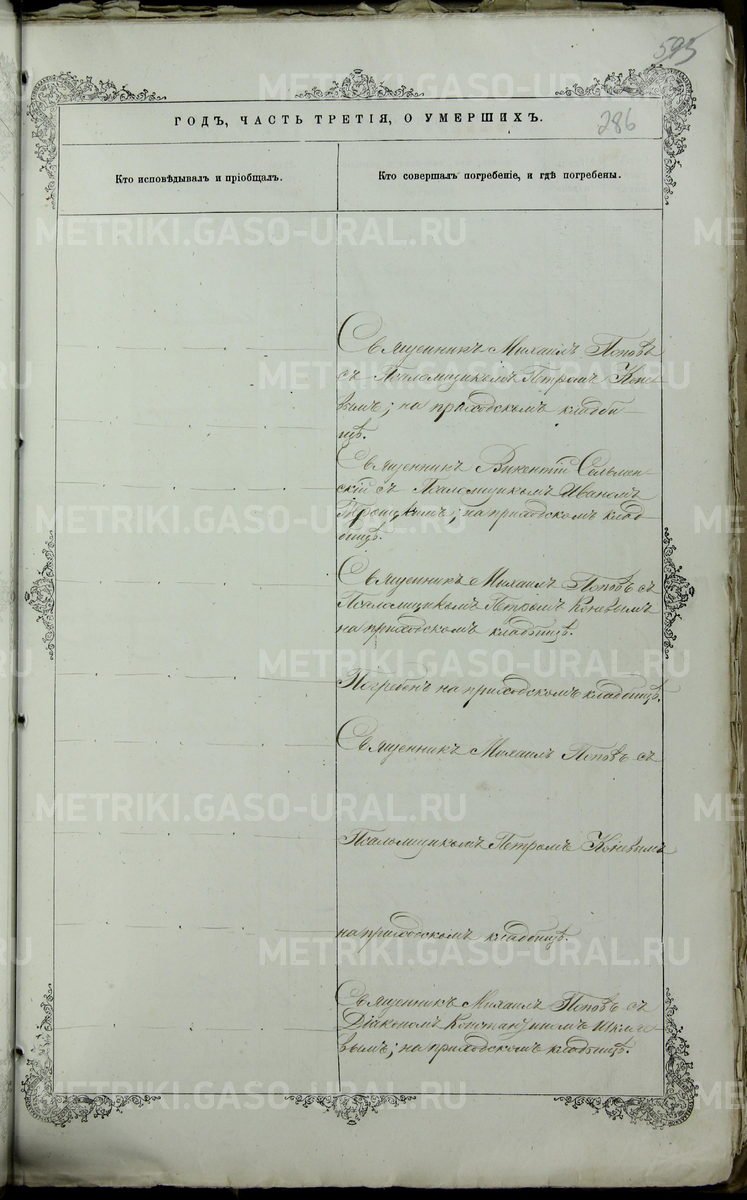 595
ГОДЪ, ЧАСТЬ ТРЕТІЯ, О УМЕРШИХЪ.
286
Кто исповѣдывалъ и пріобщалъ.
Кто совершалъ погребеніе, и гдѣ погребены.
Священникъ Михаилъ Поповъ
съ Псаломщикомъ Петромъ Коне-
вымъ; на приходскомъ кладби-
щѣ.
Священникъ Викентій Сельмен-
скій съ Псаломщикомъ Иваномъ
Троицкимъ; на приходскомъ клад-
бищѣ.
Священникъ Михаилъ Поповъ съ
Псаломщикомъ Петромъ Коневымъ
на приходскомъ кладбищѣ.
Погребенъ на приходскомъ кладбищѣ.
Священникъ Михаилъ Поповъ съ
Псаломщикомъ Петромъ Коневымъ
на приходскомъ кладбищѣ.
Священникъ Михаилъ Поповъ съ
Діакономъ Константиномъ
вымъ; на приходскомъ кладбищѣ.
METRIKI.GASO-URAL.RU